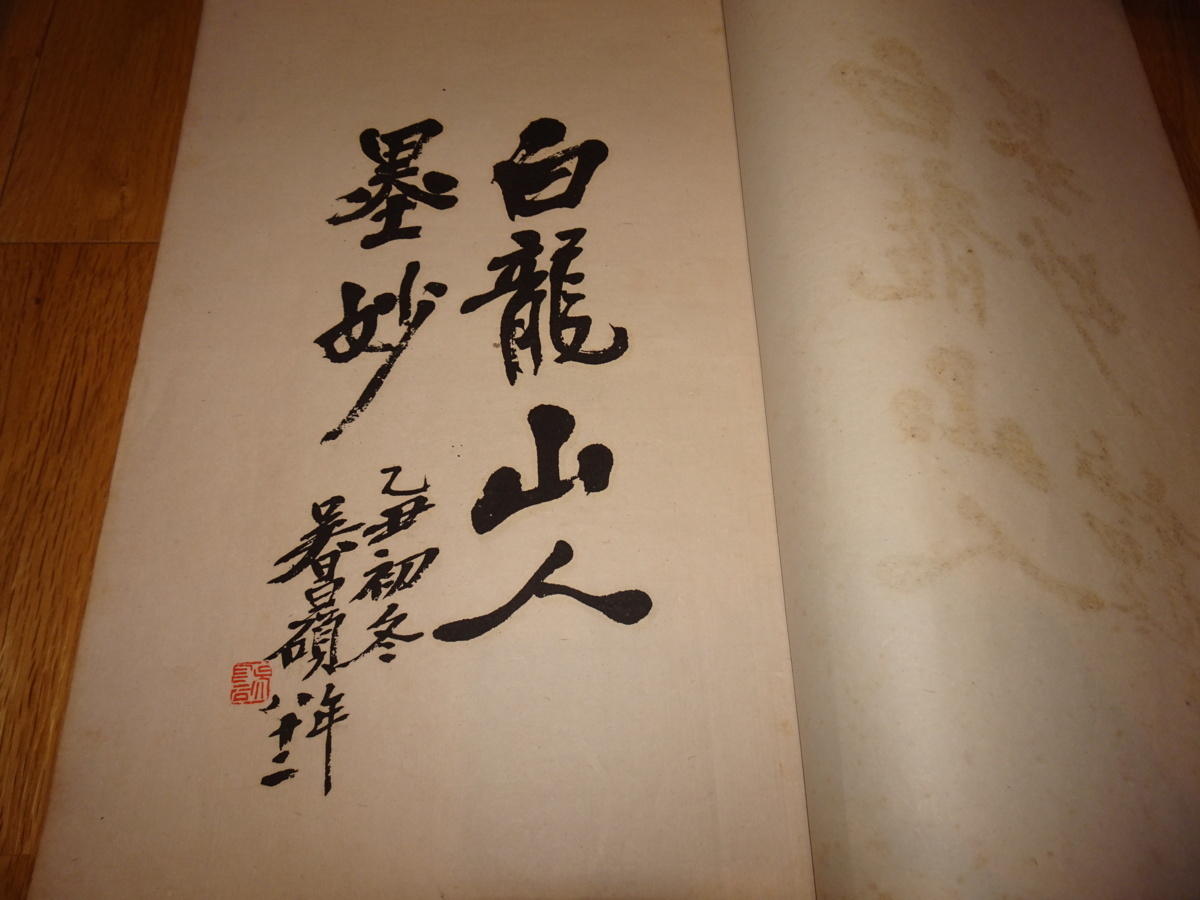 白龍山人
墨妙
乙丑初冬
吳昌碩年
八十二